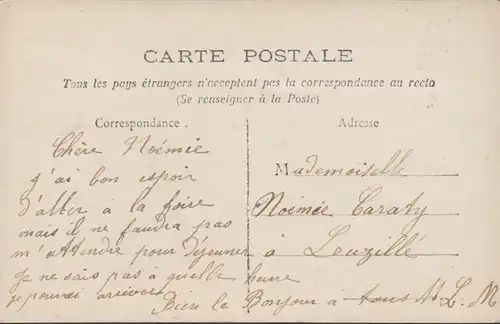 CARTE POSTALE
Tous les pays étrangers n'acceptent pas la correspondance au recto
(Se renseigner à la Poste)
Correspondance.
Adresse
Chère Noémie
j'ai bon espoir
d'aller à la foire
mais il ne faudra pas
m'attendre pour déjeuner
Je ne sais pas à quelle heure
je pourrai arriver
Bien le Bonjour à tous
Mademoiselle
Noémie Caraty
à Leuzillé